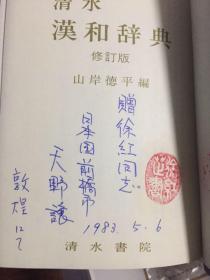 清水
漢和辞典
修訂版
山岸徳平編
贈徐紅同志
日本国前橋市
天野譲
1983.5.6
敦煌にて
清水書院